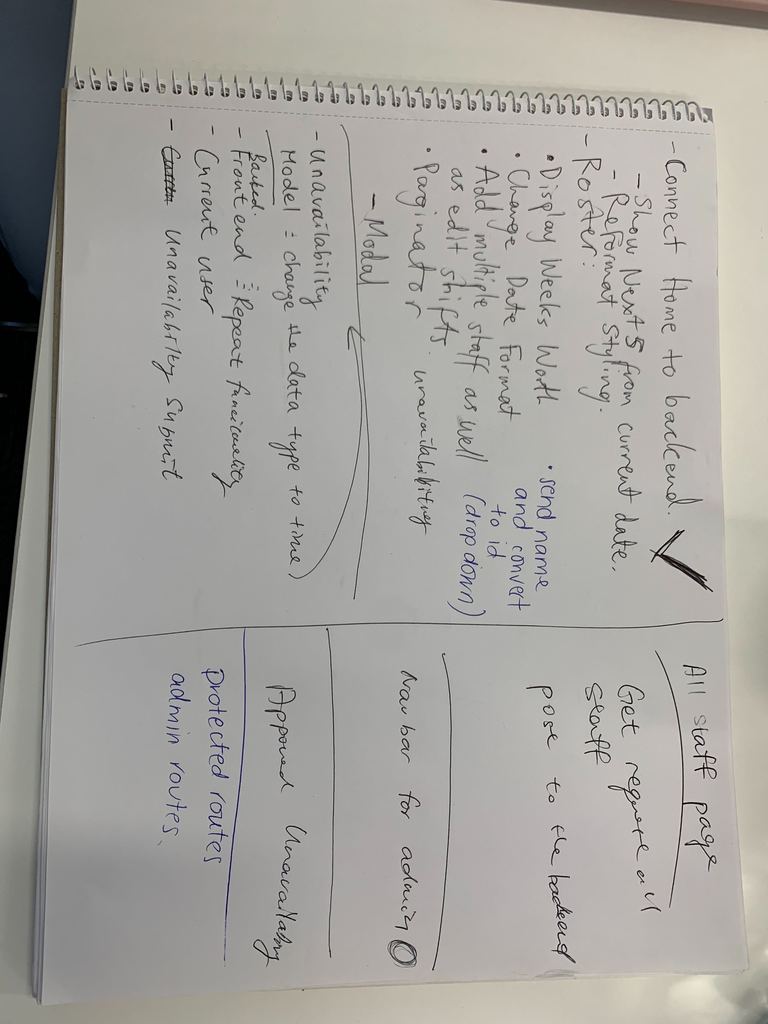 - Connect Home to backend.
- Show Next 5 from current date.
- Reformat Styling.
- Roster:
• Display Weeks Worth
• Change Date Format
• Add multiple staff as well
as edit shifts.
• Paginator
• send name
and convert
to id
(dropdown)
- Modal
- Unavailability
Model : change the data type to time)
Backed.
- Frontend : Repeat funcionality
- Current user
- Unavailability Submit
All staff page
Get request all
staff
post to the backend
Navbar for admin
Approved Unavailabity
protected routes
admin routes.